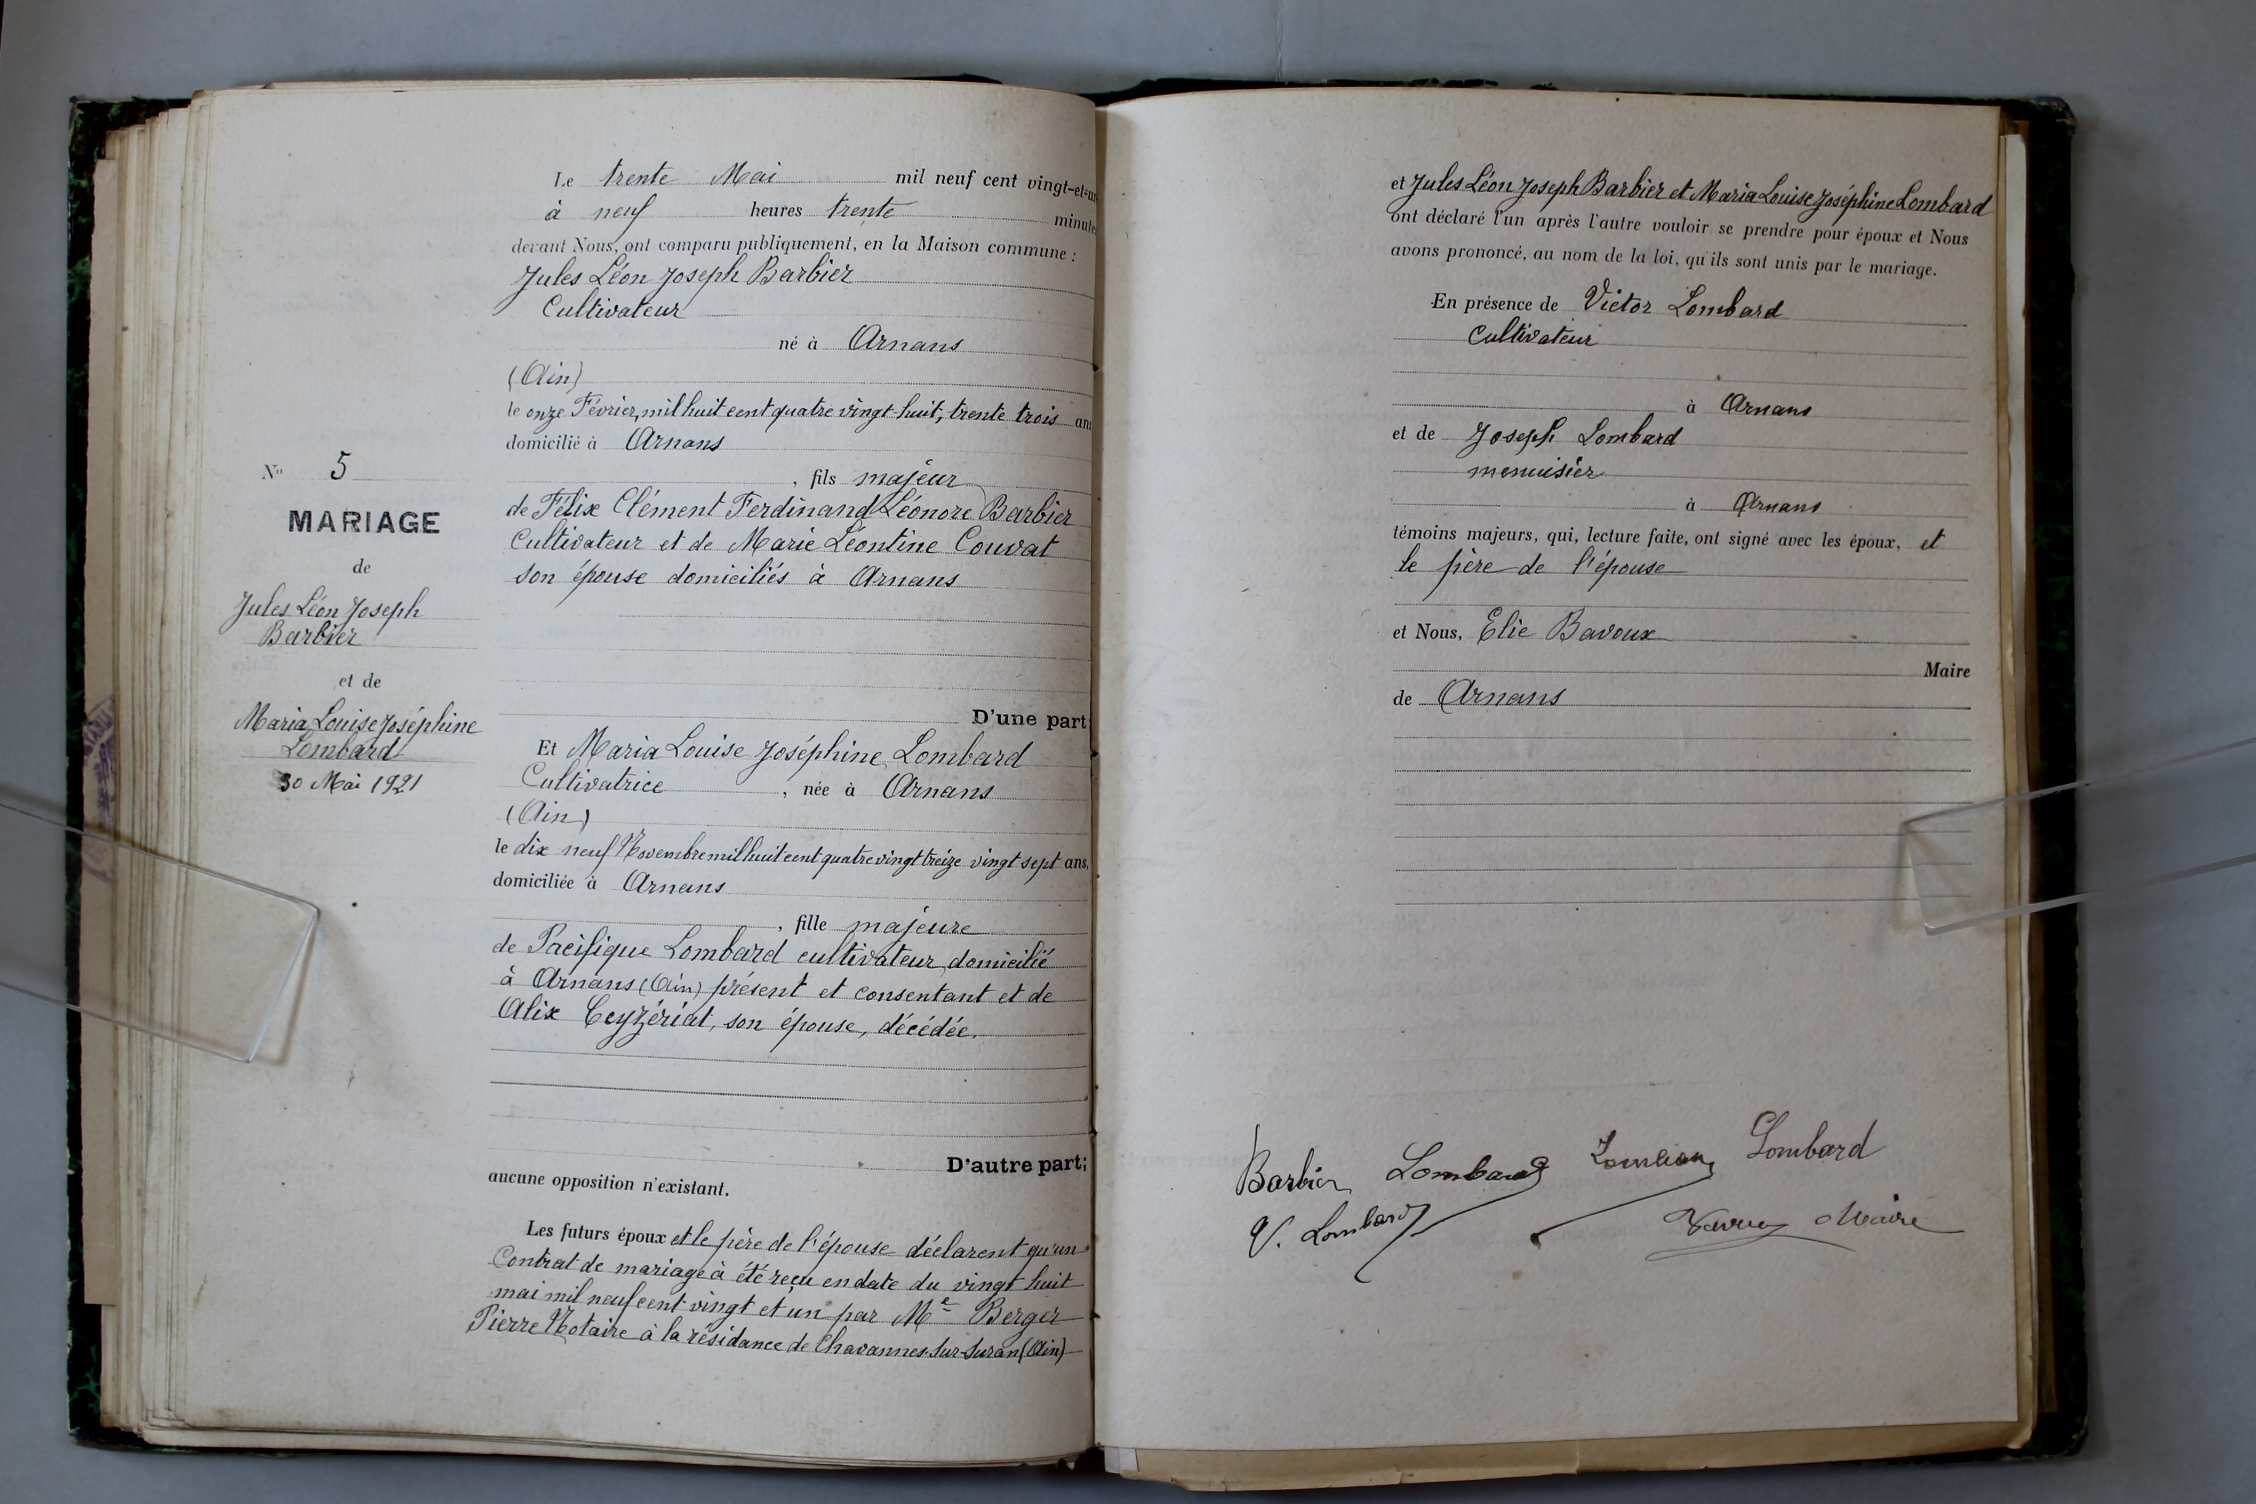 N° 5
MARIAGE
de
Jules Léon Joseph
Barbier
et de
Maria Louise Joséphine
Lombard
30 Mai 1921
Le trente Mai mil neuf cent vingt-et-un
à neuf heures trente minutes
devant Nous, ont comparu publiquement, en la Maison commune :
Jules Léon Joseph Barbier
Cultivateur
né à Arnans
(Ain)
le onze Février, mil huit cent quatre vingt-huit, trente trois ans
domicilié à Arnans
, fils majeur
de Félix Clément Ferdinand Léonore Barbier
Cultivateur et de Marie Léontine Couvat
son épouse domiciliés à Arnans
D'une part;
Et Maria Louise Joséphine Lombard
Cultivatrice , née à Arnans
(Ain)
le dix neuf Novembre mil huit cent quatre vingt treize vingt sept ans,
domiciliée à Arnans
, fille majeure
de Pacifique Lombard cultivateur domicilié
à Arnans (Ain) présent et consentant et de
Alix Ceyzériat, son épouse, décédée.
D'autre part;
aucune opposition n'existant.
Les futurs époux et le père de l'épouse déclarent qu'un
Contrat de mariage à été reçu en date du vingt huit
mai mil neuf cent vingt et un par Me Berger
Pierre Notaire à la résidance de Chavannes-sur-Suran (Ain)
et Jules Léon Joseph Barbier et Maria Louise Joséphine Lombard
ont déclaré l'un après l'autre vouloir se prendre pour époux et Nous
avons prononcé, au nom de la loi, qu'ils sont unis par le mariage.
En présence de Victor Lombard
Cultivateur
à Arnans
et de Joseph Lombard
menuisier
à Arnans
témoins majeurs, qui, lecture faite, ont signé avec les époux, et
le père de l'épouse
et Nous, Elie Bavoux
Maire
de Arnans
Barbier Lombard Lombard
V. Lombard Maire